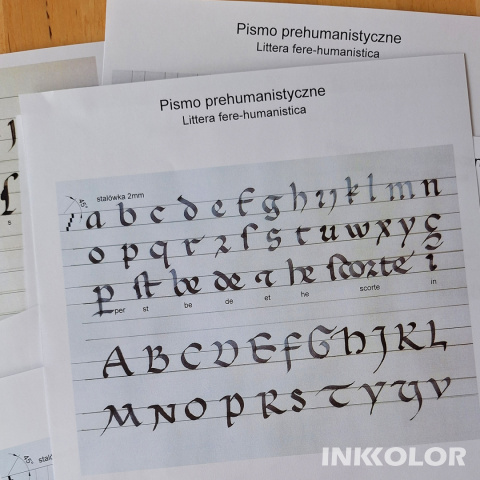 Pismo prehumanistyczne
Littera fere-humanistica
Pismo prehumanistyczne
Littera fere-humanistica
stalówka 2mm
a b c d e f g h i j k l m n
o p q r r ſ s t u w x y ç
ꝑ st be de ⁊ he scorte ī
per st be de et he scorte in
A B C D E F G H J K L
M N O P R S T Y Y V
s
INKKOLOR